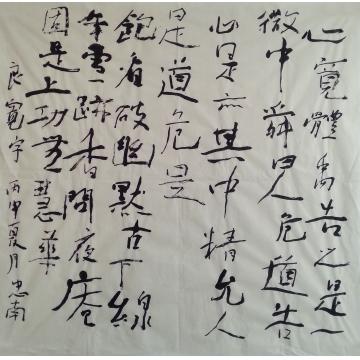 心寬體為告之是一
微中舜曰人危道告
心是亦其中精允人
是道危是
飽看破幽默古下線
年雪一蹤香問夜庵
因是上功芝慧華
良寬字 丙申夏月忠南